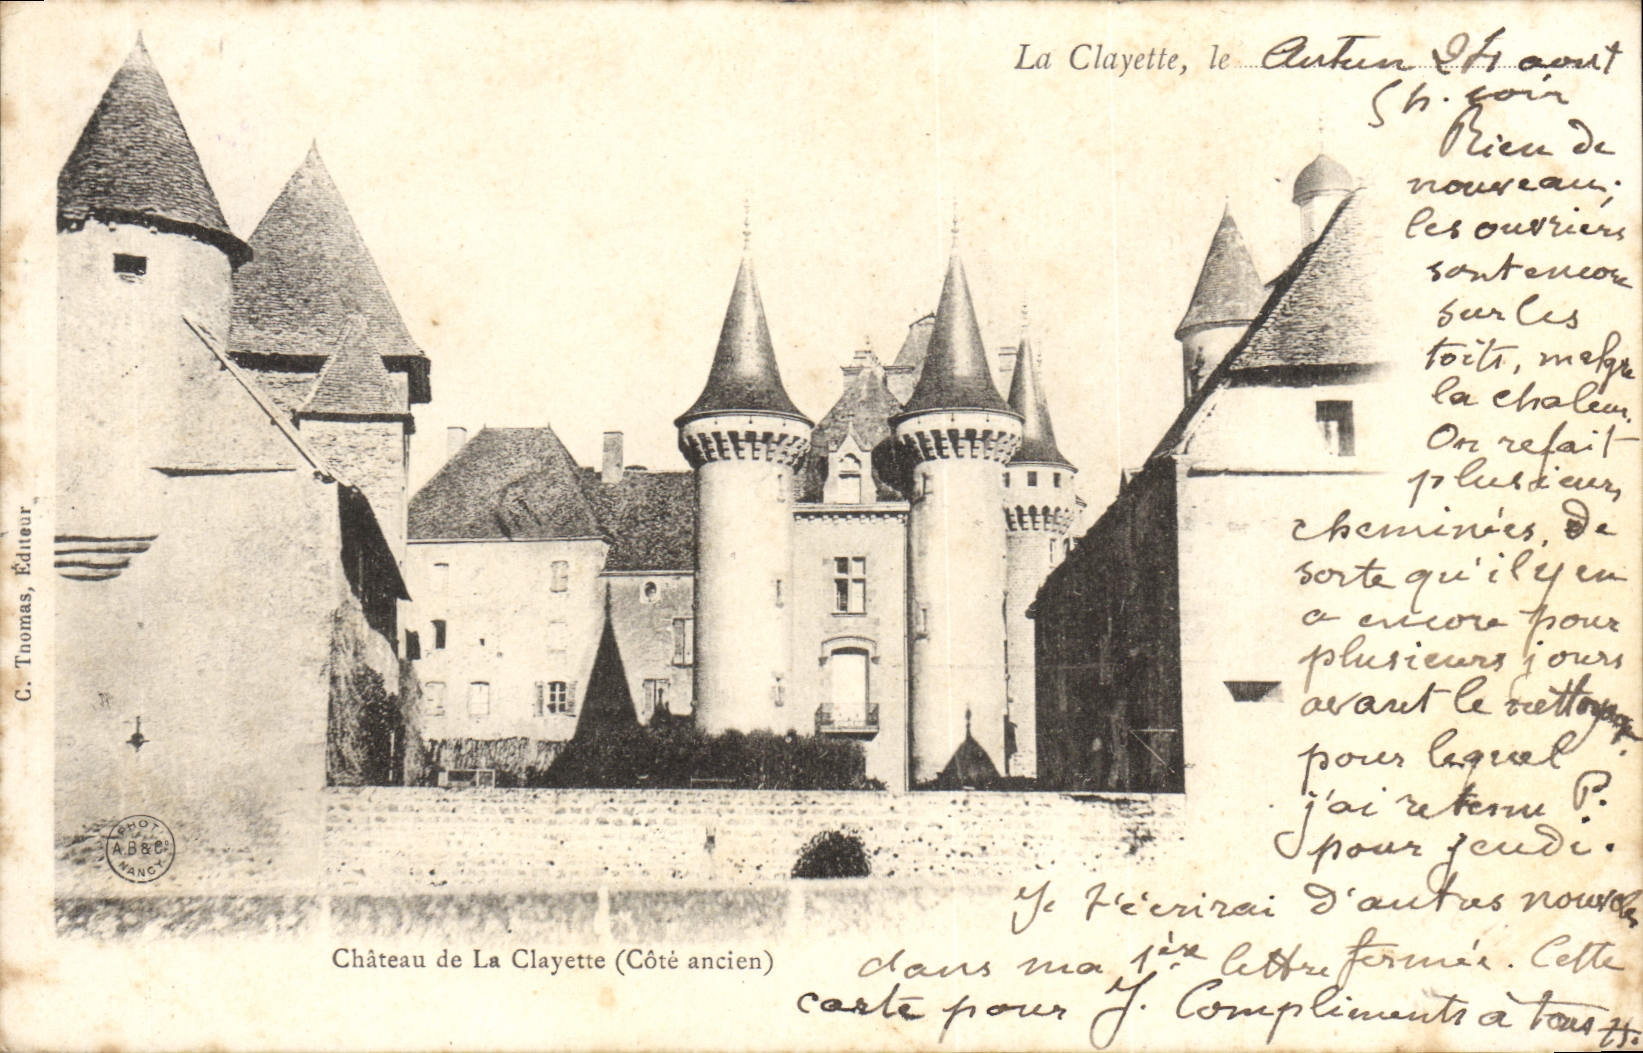 La Clayette, le Autun 24 aout
5 h. soir
Rien de
nouveau;
les ouvriers
sont encore
sur les
toits, malgré
la chaleur.
On refait
plusieurs
cheminées, de
sorte qu'il y en
a encore pour
plusieurs jours
avant le nettoyage
pour lequel
j'ai retenu P.
pour jeudi.
Je t'écrirai d'autres nouvelles
dans ma 1ère lettre fermée. Cette
carte pour J. Compliments à tous
Château de La Clayette (Côté ancien)
C. Thomas, Éditeur
PHOT.
A.B & Cie
NANCY